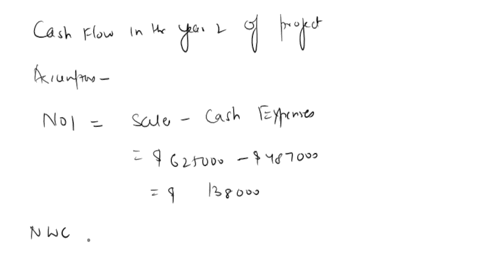 Cash Flow in the year 2 of project
Assumption -
NOI = Sale - Cash Expenses
= $ 625000 - $ 487000
= $ 138000
NWC .